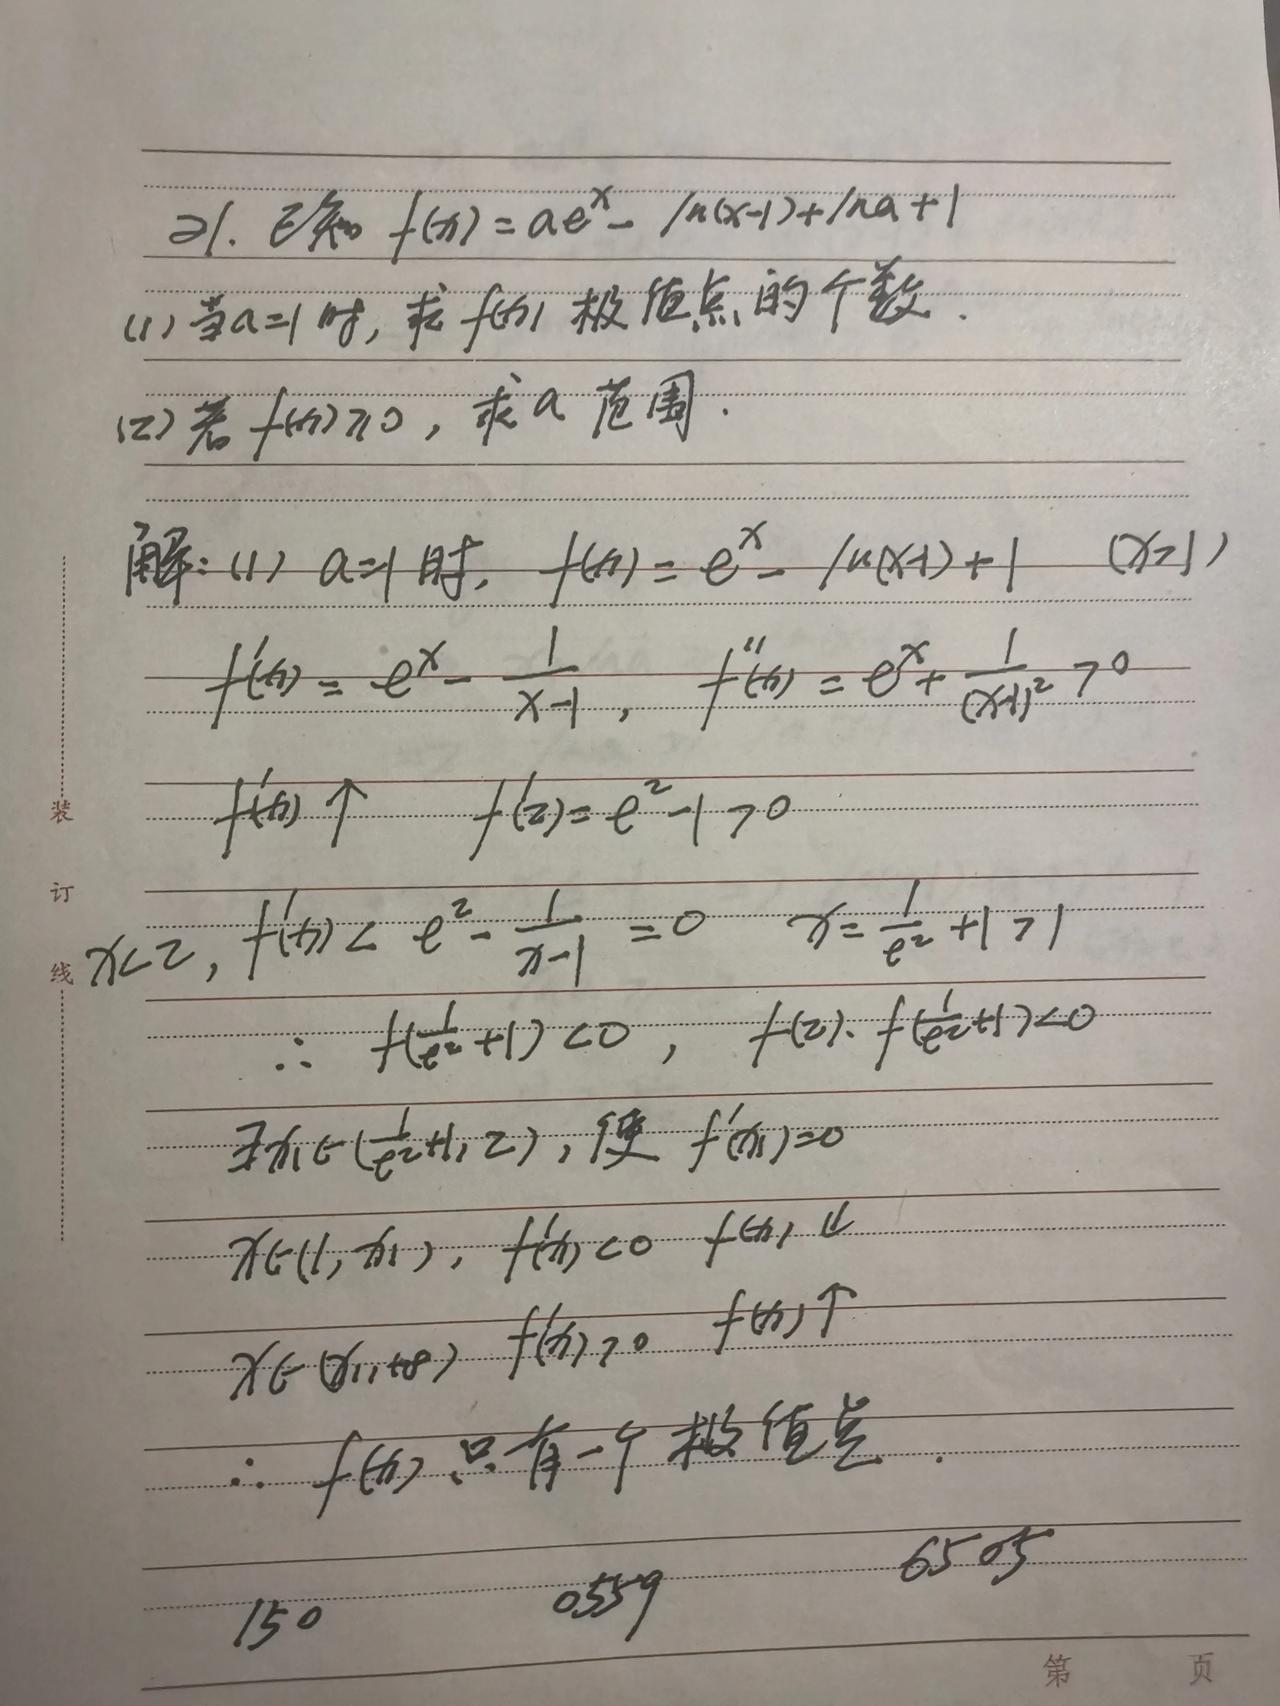 21. 已知 f(x)=ae^x - ln(x-1)+lna+1
(1) 当a=1时, 求f(x) 极值点的个数.
(2) 若 f(x)≥0, 求a 范围.
解: (1) a=1时, f(x)=e^x - ln(x-1)+1 (x>1)
f'(x)=e^x - 1/(x-1), f''(x)=e^x+1/(x-1)^2>0
f'(x)↑ f'(2)=e^2-1>0
x<2, f'(x)< e^2- 1/(x-1) =0 x=1/e^2+1>1
∴ f(1/e^2+1)<0, f(2)·f(1/e^2+1)<0
∃x₁∈(1/e^2+1, 2), 使 f'(x₁)=0
x∈(1, x₁), f'(x)<0 f(x)↓
x∈(x₁,+∞) f'(x)>0 f(x)↑
∴ f(x)只有一个极值点.
150 0559 6505
装
订
线
第 页